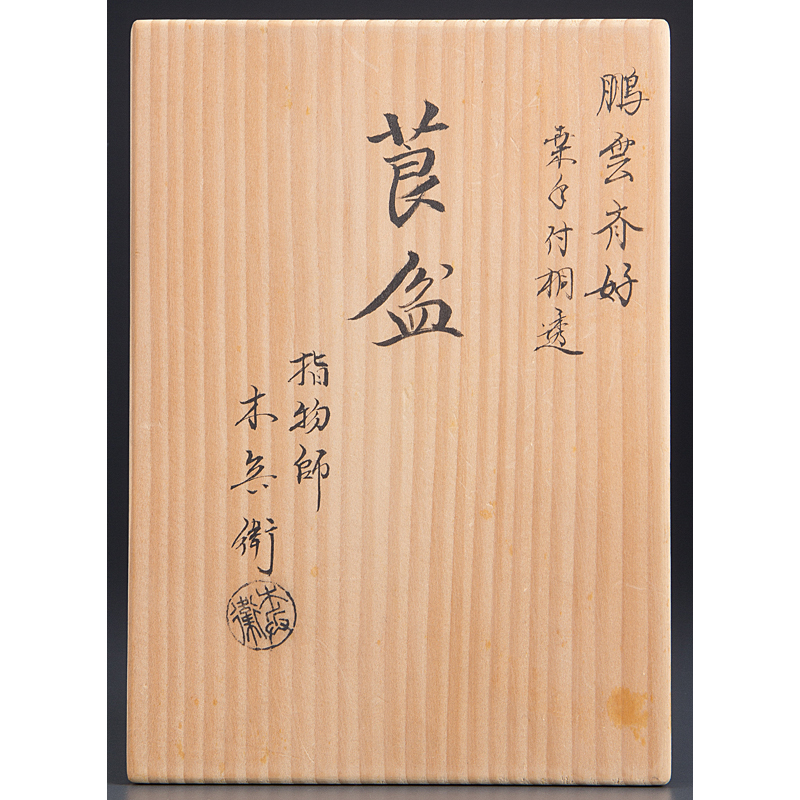 鵬雲斉好
桑手付桐透
莨盆
指物師
木兵衛
木兵衛